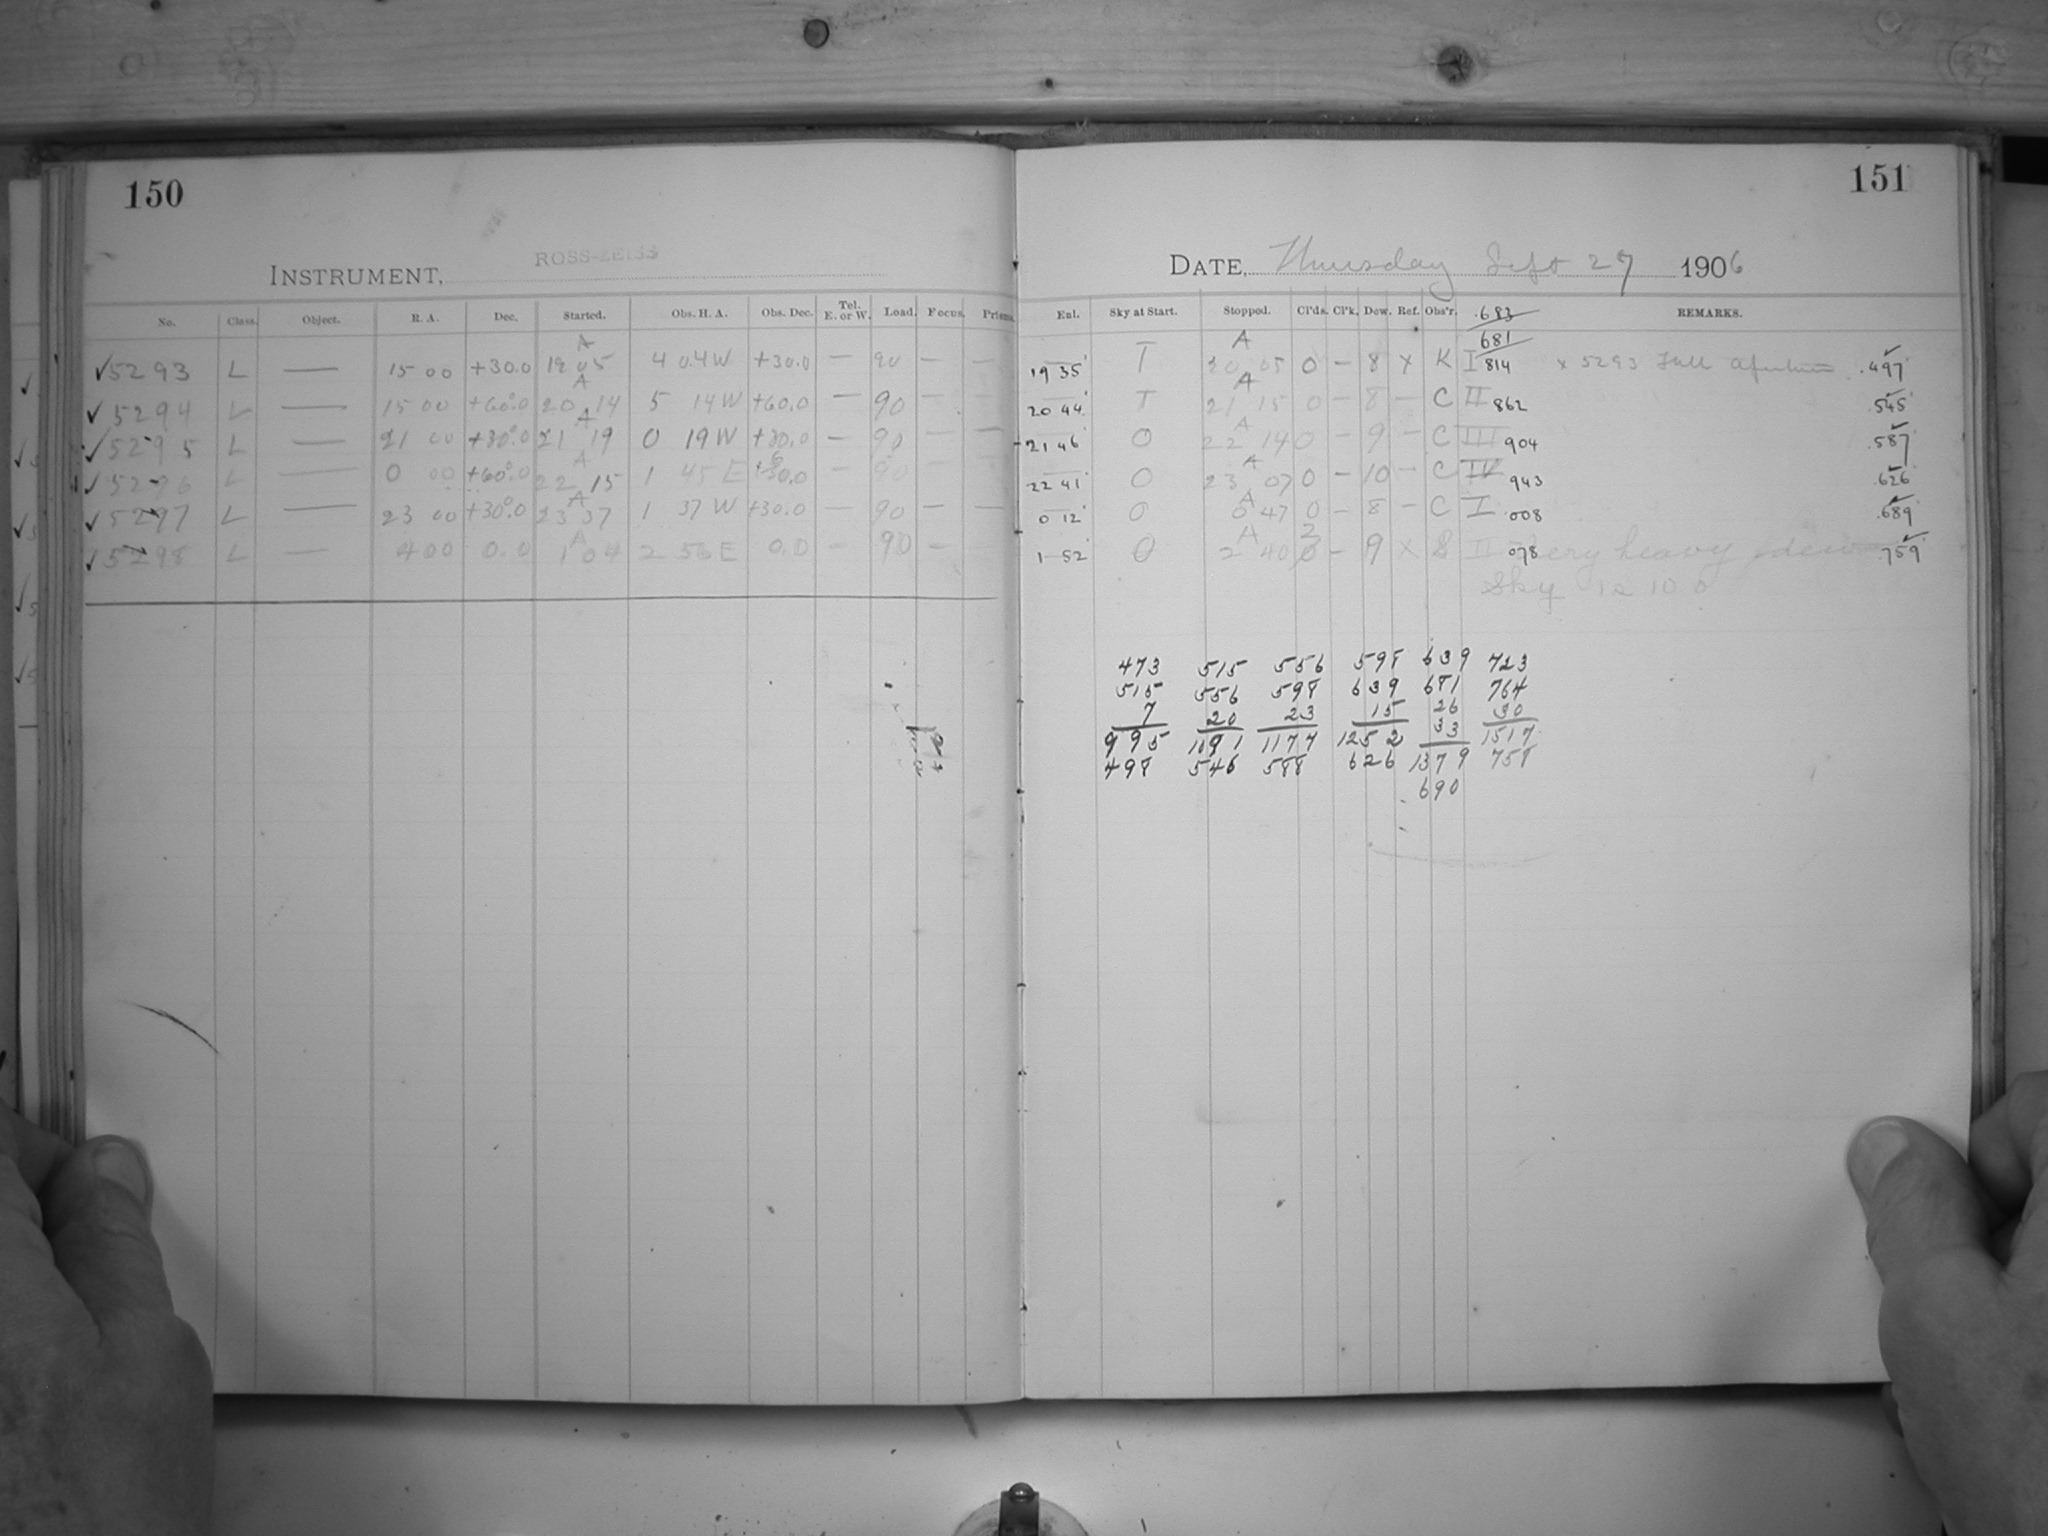 150
INSTRUMENT, ROSS-ZEISS
No. Class. Object. R. A. Dec. Started. Obs. H. A. Obs. Dec. Tel. E. or W. Load. Focus. Prisms.
✓5293 L — 15 00 +30.0 A 19 05 4 0.4 W +30.0 — 90 — —
✓5294 L — 15 00 +60.0 A 20 14 5 14 W +60.0 — 90 — —
✓5295 L — 21 00 +30.0 A 21 19 0 19 W +30.0 — 90 — —
✓5296 L — 0 00 +60.0 A 22 15 1 45 E +60.0 — 90 — —
✓5297 L — 23 00 +30.0 A 23 37 1 37 W +30.0 — 90 — —
✓5298 L — 4 00 0.0 A 1 04 2 56 E 0.0 — 90 —
151
DATE, Thursday Sept 27 1906
Enl. Sky at Start. Stopped. Cl'ds. Cl'k. Dew. Ref. Obs'r. REMARKS.
.683
681
19 35 T A 20 05 0 — 8 x K I 814 x 5293 Full aperture .497
20 44 T A 21 15 0 — 8 — C II 862 .545
21 46 0 A 22 14 0 — 9 — C III 904 .587
22 41 0 A 23 07 0 — 10 — C IV 943 .626
0 12 0 A 0 47 0 — 8 — C I .008 .689
1 52 0 A 2 40 — 9 x S II 078 Very heavy dew .759
Sky is 10.0
473 515 556 598 639 723
515 556 598 639 681 764
7 20 23 15 26 30
33
995 1091 1177 1252 1379 1517
498 546 588 626 690 758